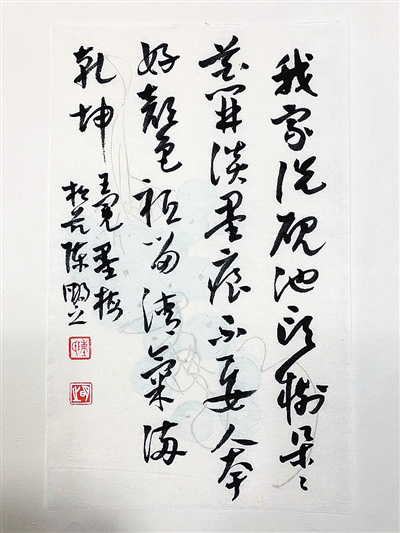 我家洗砚池頭树朵〻
花開淡墨痕不要人夸
好颜色祗留清氣满
乾坤 王冕墨梅
陈鹏